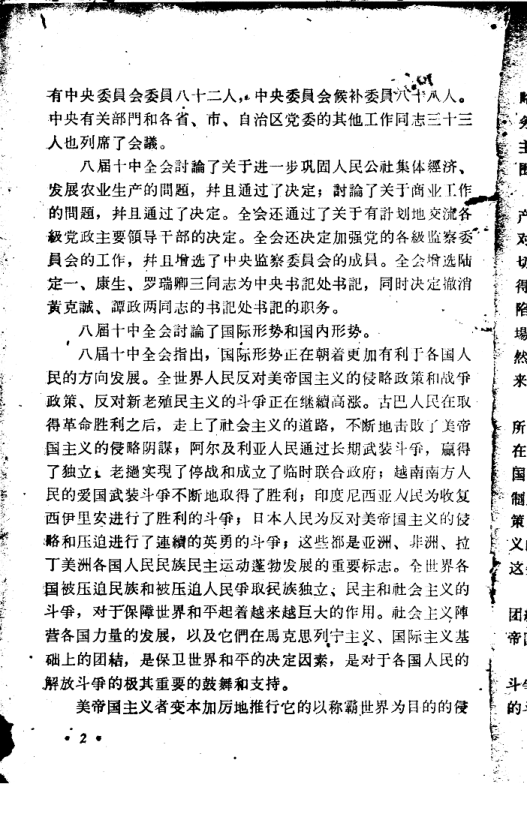 有中央委員会委員八十二人，中央委員会候补委員八十八人。
中央有关部門和各省、市、自治区党委的其他工作同志三十三
人也列席了会議。
八届十中全会討論了关于进一步巩固人民公社集体經济、
发展农业生产的問題，幷且通过了决定；討論了关于商业工作
的問題，幷且通过了决定。全会还通过了关于有計划地交流各
級党政主要領导干部的决定。全会还决定加强党的各級监察委
員会的工作，幷且增选了中央监察委員会的成員。全会增选陆
定一、康生、罗瑞卿三同志为中央书記处书記，同时决定撤消
黃克誠、譚政两同志的书記处书記的职务。
八届十中全会討論了国际形势和国内形势。
八届十中全会指出，国际形势正在朝着更加有利于各国人
民的方向发展。全世界人民反对美帝国主义的侵略政策和战爭
政策、反对新老殖民主义的斗爭正在继續高涨。古巴人民在取
得革命胜利之后，走上了社会主义的道路，不断地击敗了美帝
国主义的侵略阴謀；阿尔及利亚人民通过长期武装斗爭，贏得
了独立；老撾实現了停战和成立了临时联合政府；越南南方人
民的爱国武装斗爭不断地取得了胜利；印度尼西亚人民为收复
西伊里安进行了胜利的斗爭；日本人民为反对美帝国主义的侵
略和压迫进行了連續的英勇的斗爭；这些都是亚洲、非洲、拉
丁美洲各国人民民族民主运动蓬勃发展的重要标志。全世界各
国被压迫民族和被压迫人民爭取民族独立、民主和社会主义的
斗爭，对于保障世界和平起着越来越巨大的作用。社会主义陣
营各国力量的发展，以及它們在馬克思列宁主义、国际主义基
础上的团結，是保卫世界和平的决定因素，是对于各国人民的
解放斗爭的极其重要的鼓舞和支持。
美帝国主义者变本加厉地推行它的以称霸世界为目的的侵
• 2 •
主
产
对
切
得
陷
場
然
来
所
在
国
制
策
义
这
团
帝
斗
的